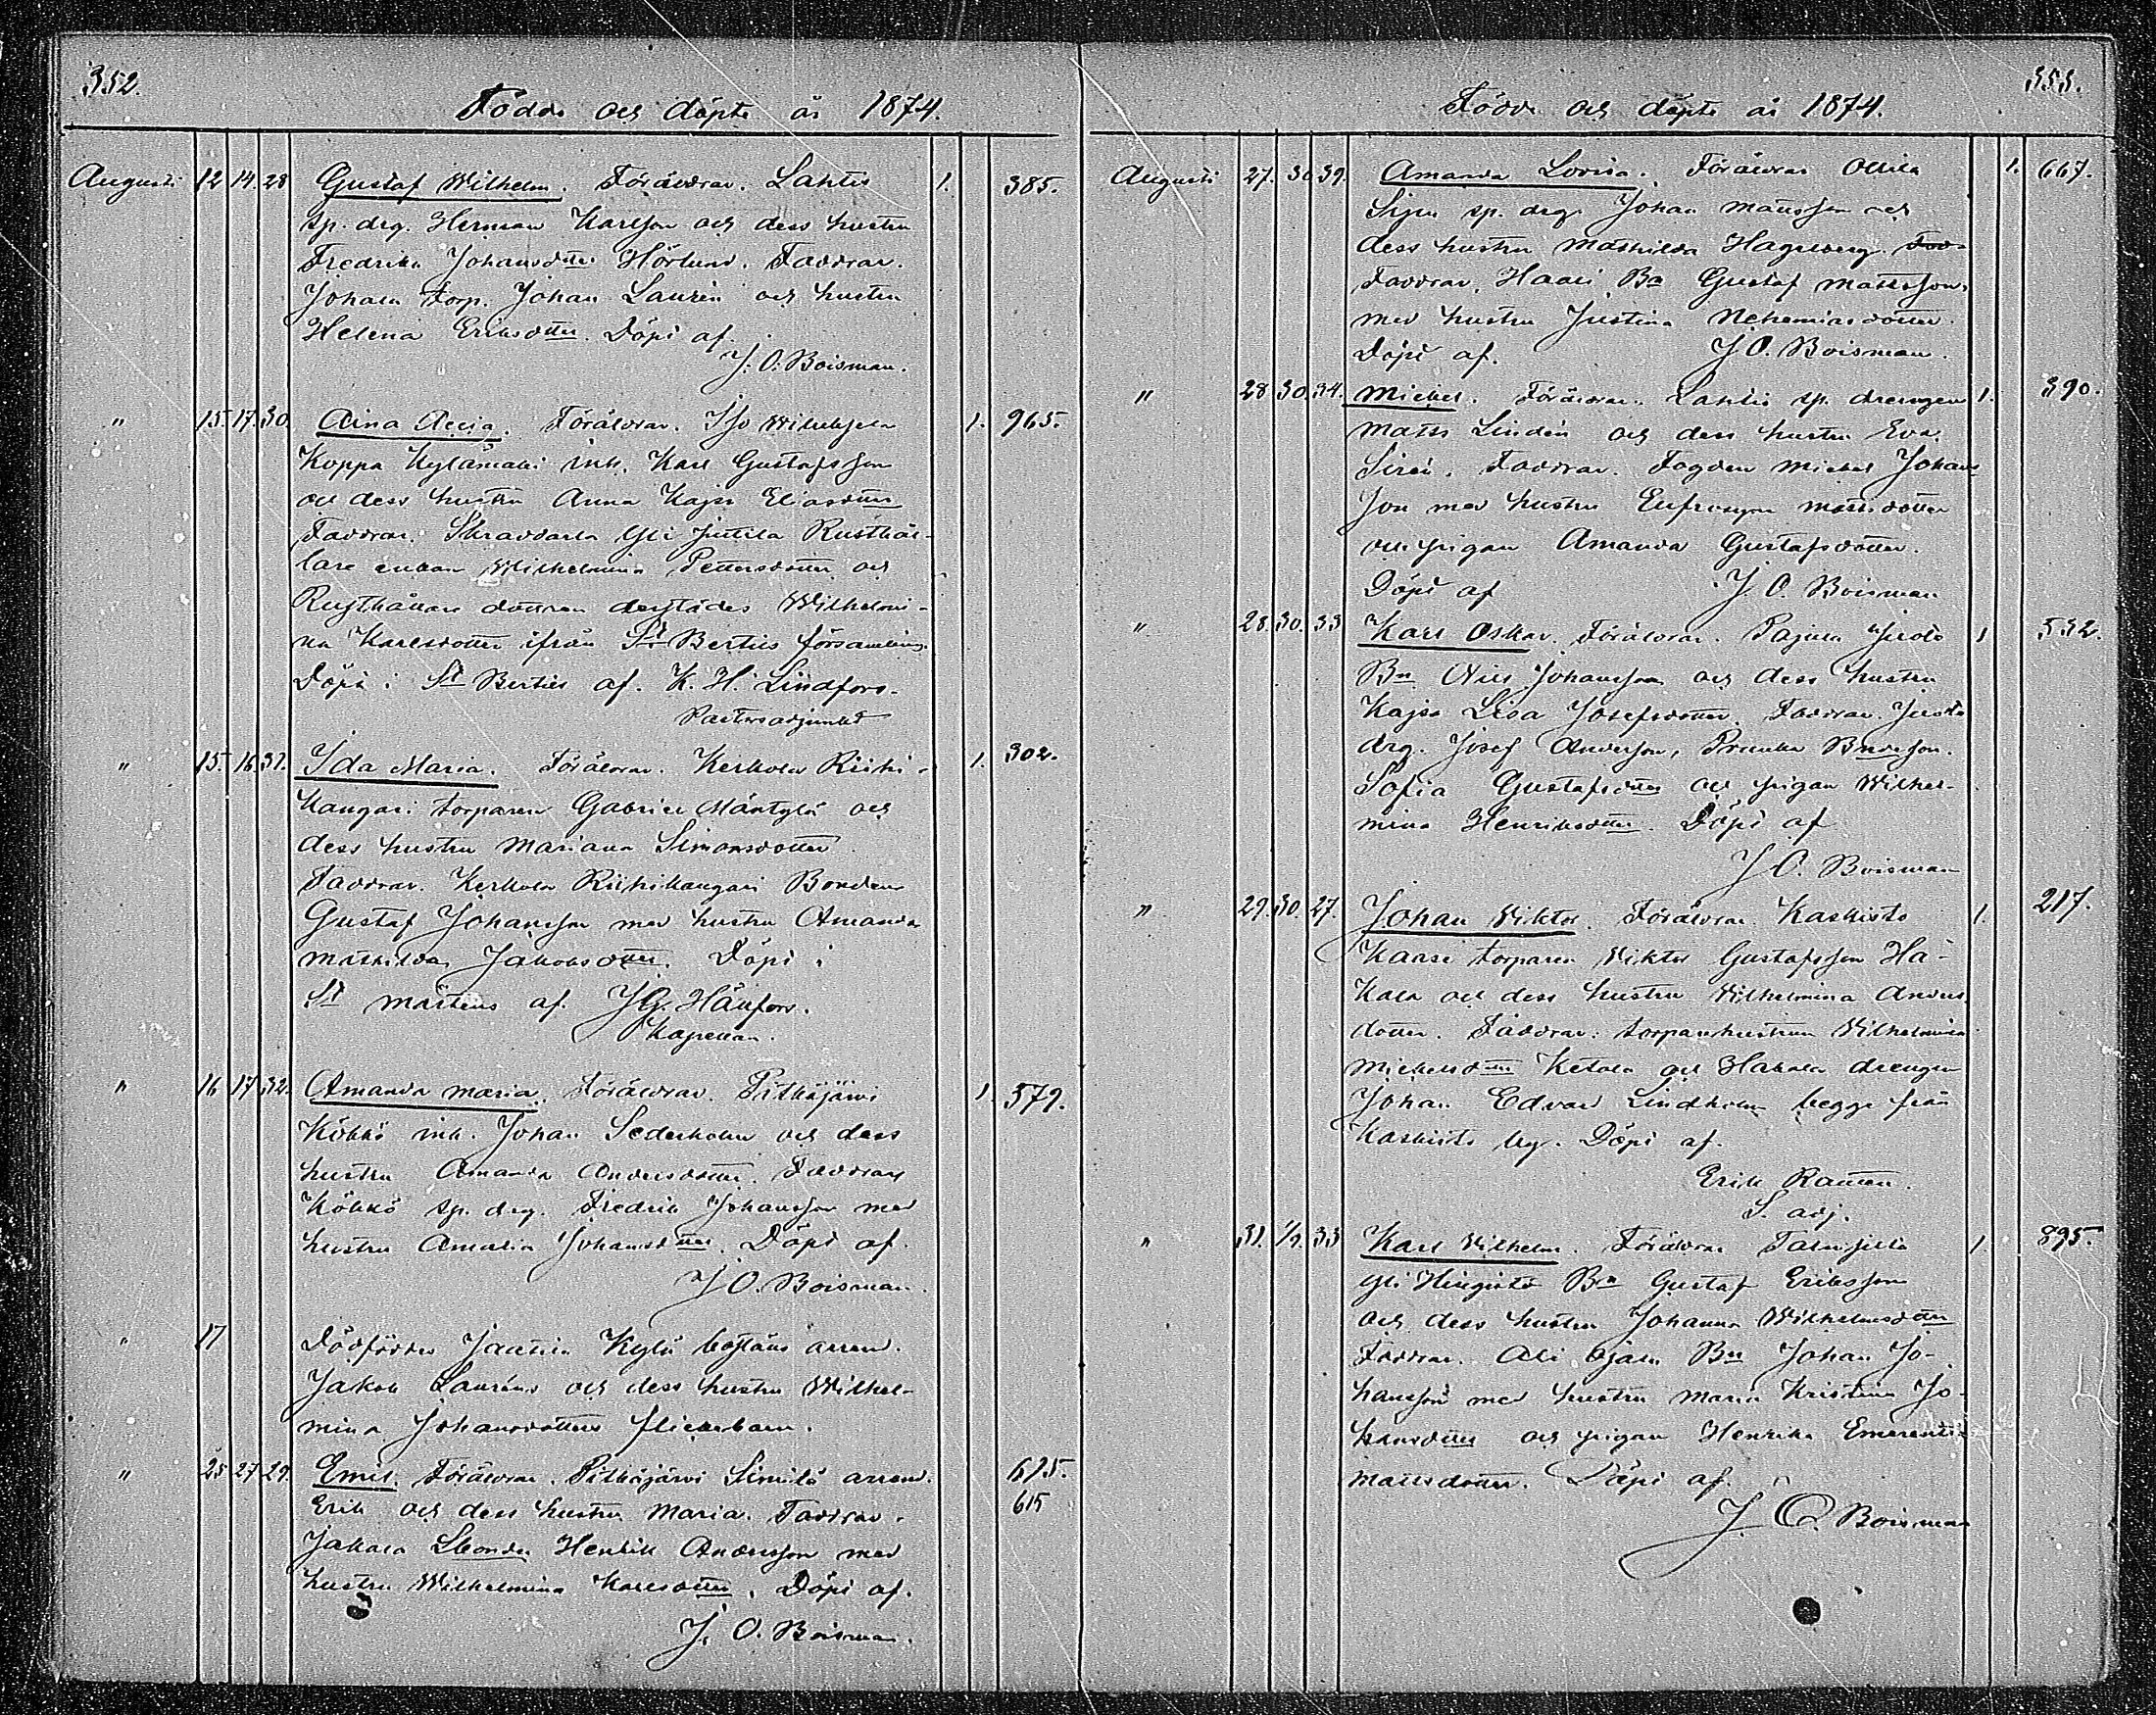 352.
Födde och döpte år 1874.
Augusti 12 14. 28 Gustaf Wilhelm. Föräldrar. Lahtis 1. 385.
sp. drg. Herman Karlsson och dess hustru
Fredrika Johansdotter Hörlund. Faddrar.
torp. Johan Laurén och hustru
Helena Eriksdotter. Döpt af.
J. O. Boisman.
" 15. 17. 30. Aina Föräldrar. Iso 1. 965.
Koppa Kylämäki inh. Karl Gustafsson
och dess hustru Anna Kajsa Eliasdotter
Faddrar. Yli Juttila Rusthål-
lare enkan Wilhelmina Pettersdotter och
Rusthållare dottren derstädes Wilhelmi-
na Karlsdotter ifrån St Bertils församling.
Döpt i St Bertils af. K. H. Lindfors.
Pastorsadjunkt
" 15. 16. 37. Ida Maria. Föräldrar. Kerkola Riihi- 1. 302.
kangari torparen Gabriel Mäntylä och
dess hustru Mariana Simonsdotter
Faddrar. Kerkola Riihikangari Bonden
Gustaf Johansson med hustru Amanda
Mathilda Jakobsdotter. Döpt i
St Mårtens af. J G. Hänfors.
Kapellan.
" 16 17 32. Amanda Maria. Föräldrar. Pitkäjärvi 1. 579.
Kökkö inh. Johan Sederholm och dess
hustru Amanda Andersdotter. Faddrar
Kökkö sp. drg. Fredrik Johansson med
hustru Amalia Johansdotter. Döpt af.
J O. Boisman.
" 17 Dödfödder Kylä arrend.
Jakob Lauréns och dess hustru Wilhel-
mina Johansdotters flickebarn.
" 25 27 29. Emil. Föräldrar. Pitkäjärvi Simılä arrend. 675.
Erik och dess hustru Maria. Faddrar. 615
Jakala Henrik Andersson med
hustru Wilhelmina Karlsdotter. Döpt af.
J. O. Boisman.
353.
Födde och döpte år 1874.
Augusti 27. 30 39. Amanda Lovisa. Föräldrar Ollila 1. 667.
sp. drg. Johan Mattsson och
dess hustru Mathilda Hageberg. Fad-
Faddrar. Haari Bn Gustaf Mattsson
med hustru Justina Nehemiasdotter.
Döpt af. J O. Boisman.
" 28 30. 34. Mickel. Föräldrar. Lahtis sp. drengen 1. 390.
Matts Lindén och dess hustru Eva
Sirén. Faddrar. Fogden Mickel Johans
son med hustru Eufrosyne Mattsdotter
och pigan Amanda Gustafsdotter.
Döpt af J O. Boisman
" 28. 30. 33 Karl Oskar. Föräldrar. Pajula 1 532.
Bn Nils Johansson och dess hustru
Kajsa Lisa Josefsdotter. Faddrar.
drg. Josef Andersson,
Sofia Gustafsdotter och pigan Wilhel-
mina Henriksdotter. Döpt af
J O. Boisman
" 29. 30. 27. Johan Viktor. Föräldrar Kaskisto 1. 217.
Kaasi torparen Viktor Gustafsson Ha-
kala och dess hustru Wilhelmina Anders
dotter. Faddrar: torparehustrun Wilhelmina
Mickelsdotter Ketola och Hakala drengen
Johan Edvard Lindholm begge från
Kaskisto by. Döpt af.
Erik Rautten.
S. adj.
" 31. 1/9. 33 Karl Vilhelm. Föräldrar 1. 895.
Yli Hingisto Bn Gustaf Eriksson
och dess hustru Johanna Wilhelmsdotter
Faddrar. Ali Ojala Bn Johan Jo-
hansson med hustru Maria Kristina Jo-
hansdotter och pigan Henrika Emerentia
Mattsdotter. Döpt af.
J. O. Boisman